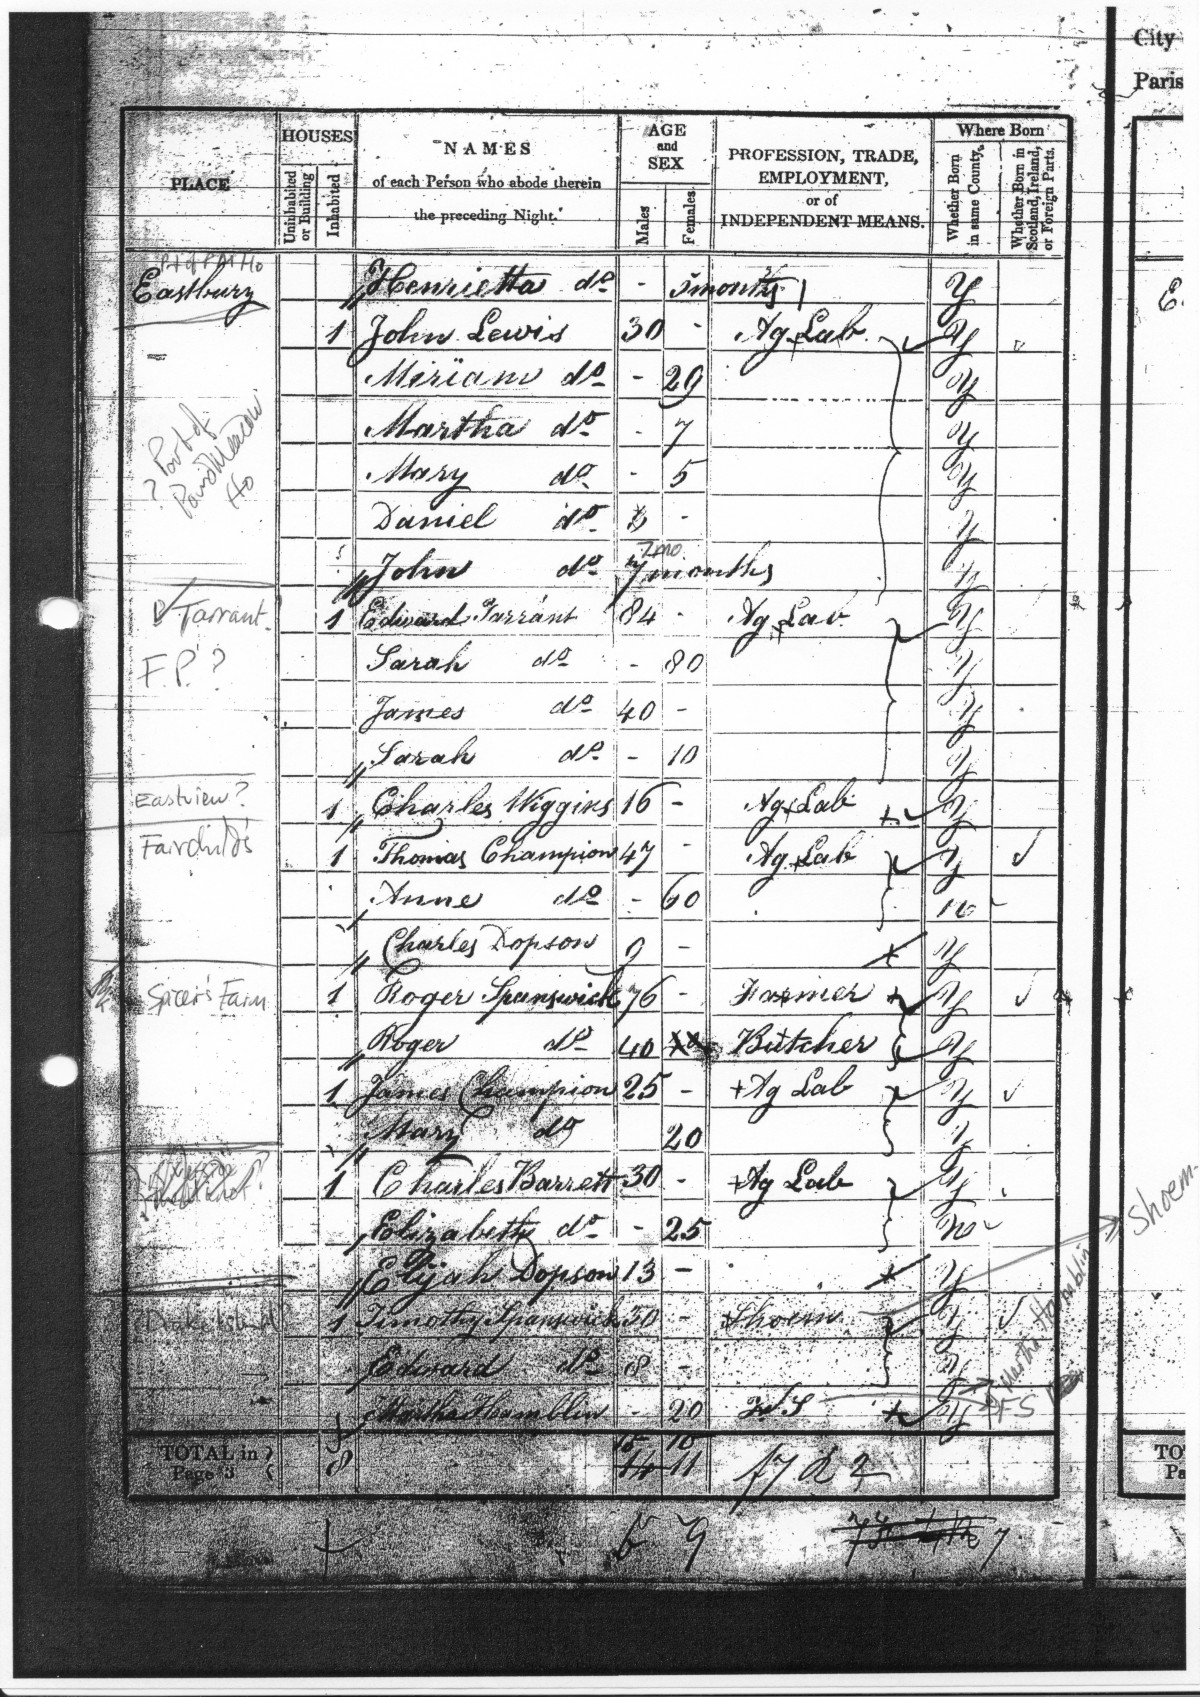 City
Paris
PLACE
HOUSES
Uninhabited or Building
Inhabited
NAMES
of each Person who abode therein
the preceding Night.
AGE
and
SEX
Males
Females
PROFESSION, TRADE,
EMPLOYMENT,
or of
INDEPENDENT MEANS.
Where Born
Whether Born in same County,
Whether Born in Scotland, Ireland, or Foreign Parts.
Eastbury Henrietta do - 5 months Y
1 John Lewis 30 - Ag Lab Y
Miriam do - 29 Y
Martha do - 7 Y
? Part of
Pound Meadow
Ho
Mary do - 5 Y
Daniel do 3 - Y
7 mo
John do 7 months Y
Tarrant 1 Edward Tarrant 84 - Ag Lab Y
F.P.? Sarah do - 80 Y
James do 40 - Y
Sarah do - 10 Y
Eastview? 1 Charles Wiggins 16 - Ag Lab Y
Fairchild's 1 Thomas Champion 47 - Ag Lab Y
Anne do - 60 N
Charles Dopson 9 - Y
Spicer's Farm 1 Roger Spanswick 76 - Farmer Y
Roger do 40 Butcher Y
1 James Champion 25 - Ag Lab Y
Mary do 20 Y
1 Charles Barrett 30 - Ag Lab Y
Elizabeth do - 25 N
Elijah Dopson 13 - Y
1 Timothy Spanswick 30 - Shoem Y
Edward do 8 - Y
Martha Hamblin - 20 F S Y
Shoem-
Martha Hamblin
FS
TOTAL in
Page 3
8 15 10
14 11
6 9 7
TO
Pa